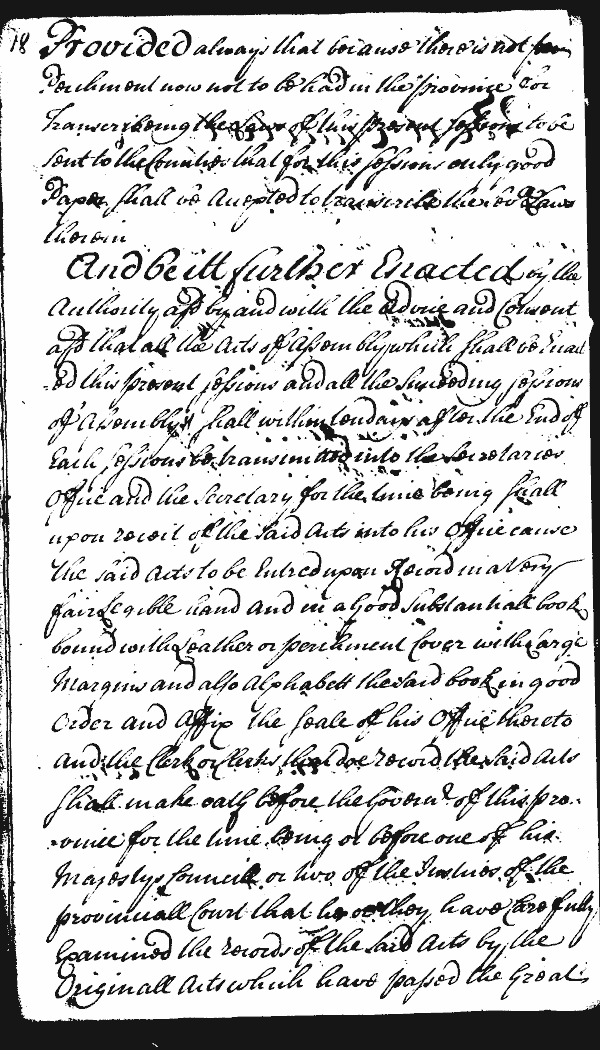 18 Provided always that because there is not
Perchment now not to be had in the province for
Transcribeing the Laws of this present sessions to be
sent to the Counties that for this sessions only good
Paper shall be Acepted to transcribe the Laws
therein
And be itt further Enacted by the
Authority afsd by and with the Advice and Consent
afsd that all the Acts of Assembly which shall be Enact
-ed this present sessions and all the Suceeding sessions
of Assembly shall within ten days after the End of
Each sessions be transmitted into the Secretaries
Office and the Secretary for the time being shall
upon receit of the said Acts into his Office cause
the said Acts to be Entred upon Record in a Very
fair Legible hand and in a Good Substantiall book
bound with Leather or perchment Cover with Large
Margins and also Alphabett the said book in good
Order and Affix the Seale of his Office thereto
and the Clerk or Clerks that doe record the said Acts
shall make oath before the Govern.r of this pro-
-vince for the time being or before one of his
Majestys Councill or two of the Justices of the
provinciall Court that he or they have Carefully
Examined the records of the said Acts by the
Originall Acts which have passed the Great